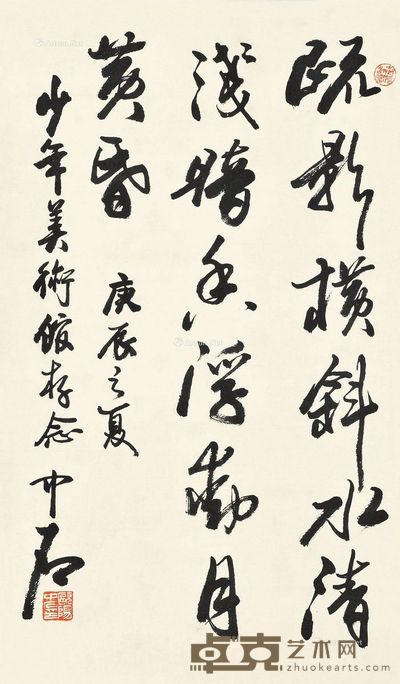 疏影横斜水清
淺暗香浮動月
黄昏 庚辰之夏
少年美術館存念 中石
卓克艺术网
www.zhuokearts.com